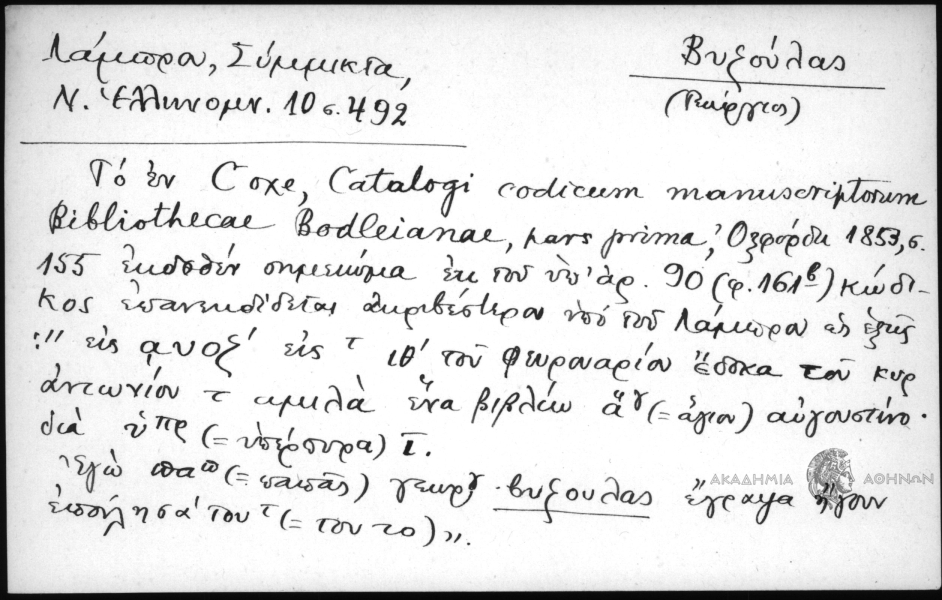 Λάμπρου, Σύμμικτα,
Ν. Ἑλληνομν. 10 σ. 492
Βυζούλας
(Γεώργιος)
Τό ἐν Coxe, Catalogi codicum manuscriptorum
Bibliothecae Bodleianae, pars prima, Ὀξφόρδη 1853, σ.
155 ἐκδοθέν σημείωμα ἐκ τοῦ ὑπ' ἀρ. 90 (φ. 161β) κώδι-
κος ἐπανεκδίδεται ἀκριβέστερον ὑπό τοῦ Λάμπρου ὡς ἑξῆς
:" εἰς αυοξ' εἰς τ ιθ' τοῦ φευρουαρίου ἔδοκα τοῦ κυρ
ἀντωνίου τ αμιλὰ ἕνα βιβλίω ἅγ (= ἅγιον) αὐγουστίνο.
διὰ ὑπρ (= ὑπέρπυρα) ι.
Ἐγὼ παπ (= παπᾶς) γεωργ βυζουλας ἔγραψα ἤγουν
ἐπούλησά του τ (= του το)».
ΑΚΑΔΗΜΙΑ ΑΘΗΝΩΝ